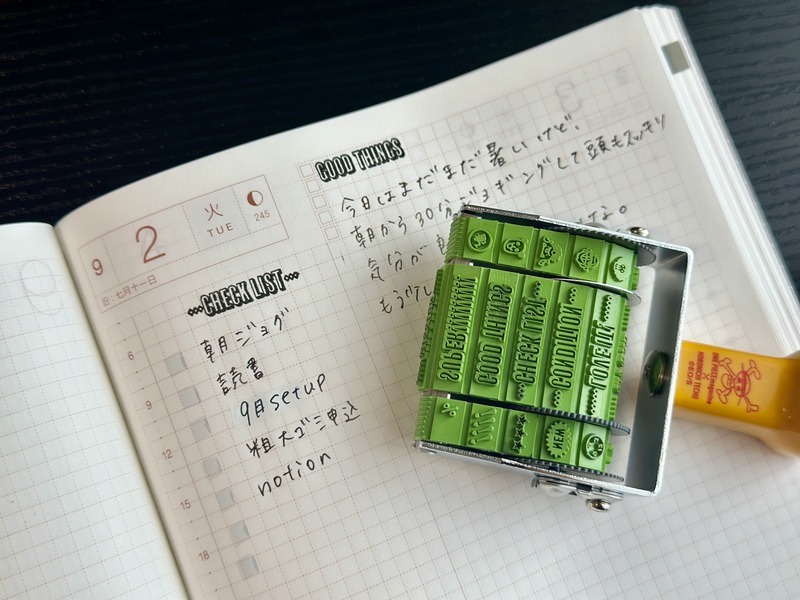 GOOD THINGS
今日はまだまだ暑いけど、
朝から30分ジョギングして頭もスッキリ
気分が
な。
9
2
火
TUE
245
旧 七月十一日
CHECK LIST
朝ジョグ
読書
9月setup
粗大ゴミ申込
notion
6
9
12
15
18
GOOD THINGS
CHECK LIST
CONDITION
MEMO
ONE PIECE magazine
×
HOBONICHI TECHO
©EO/S